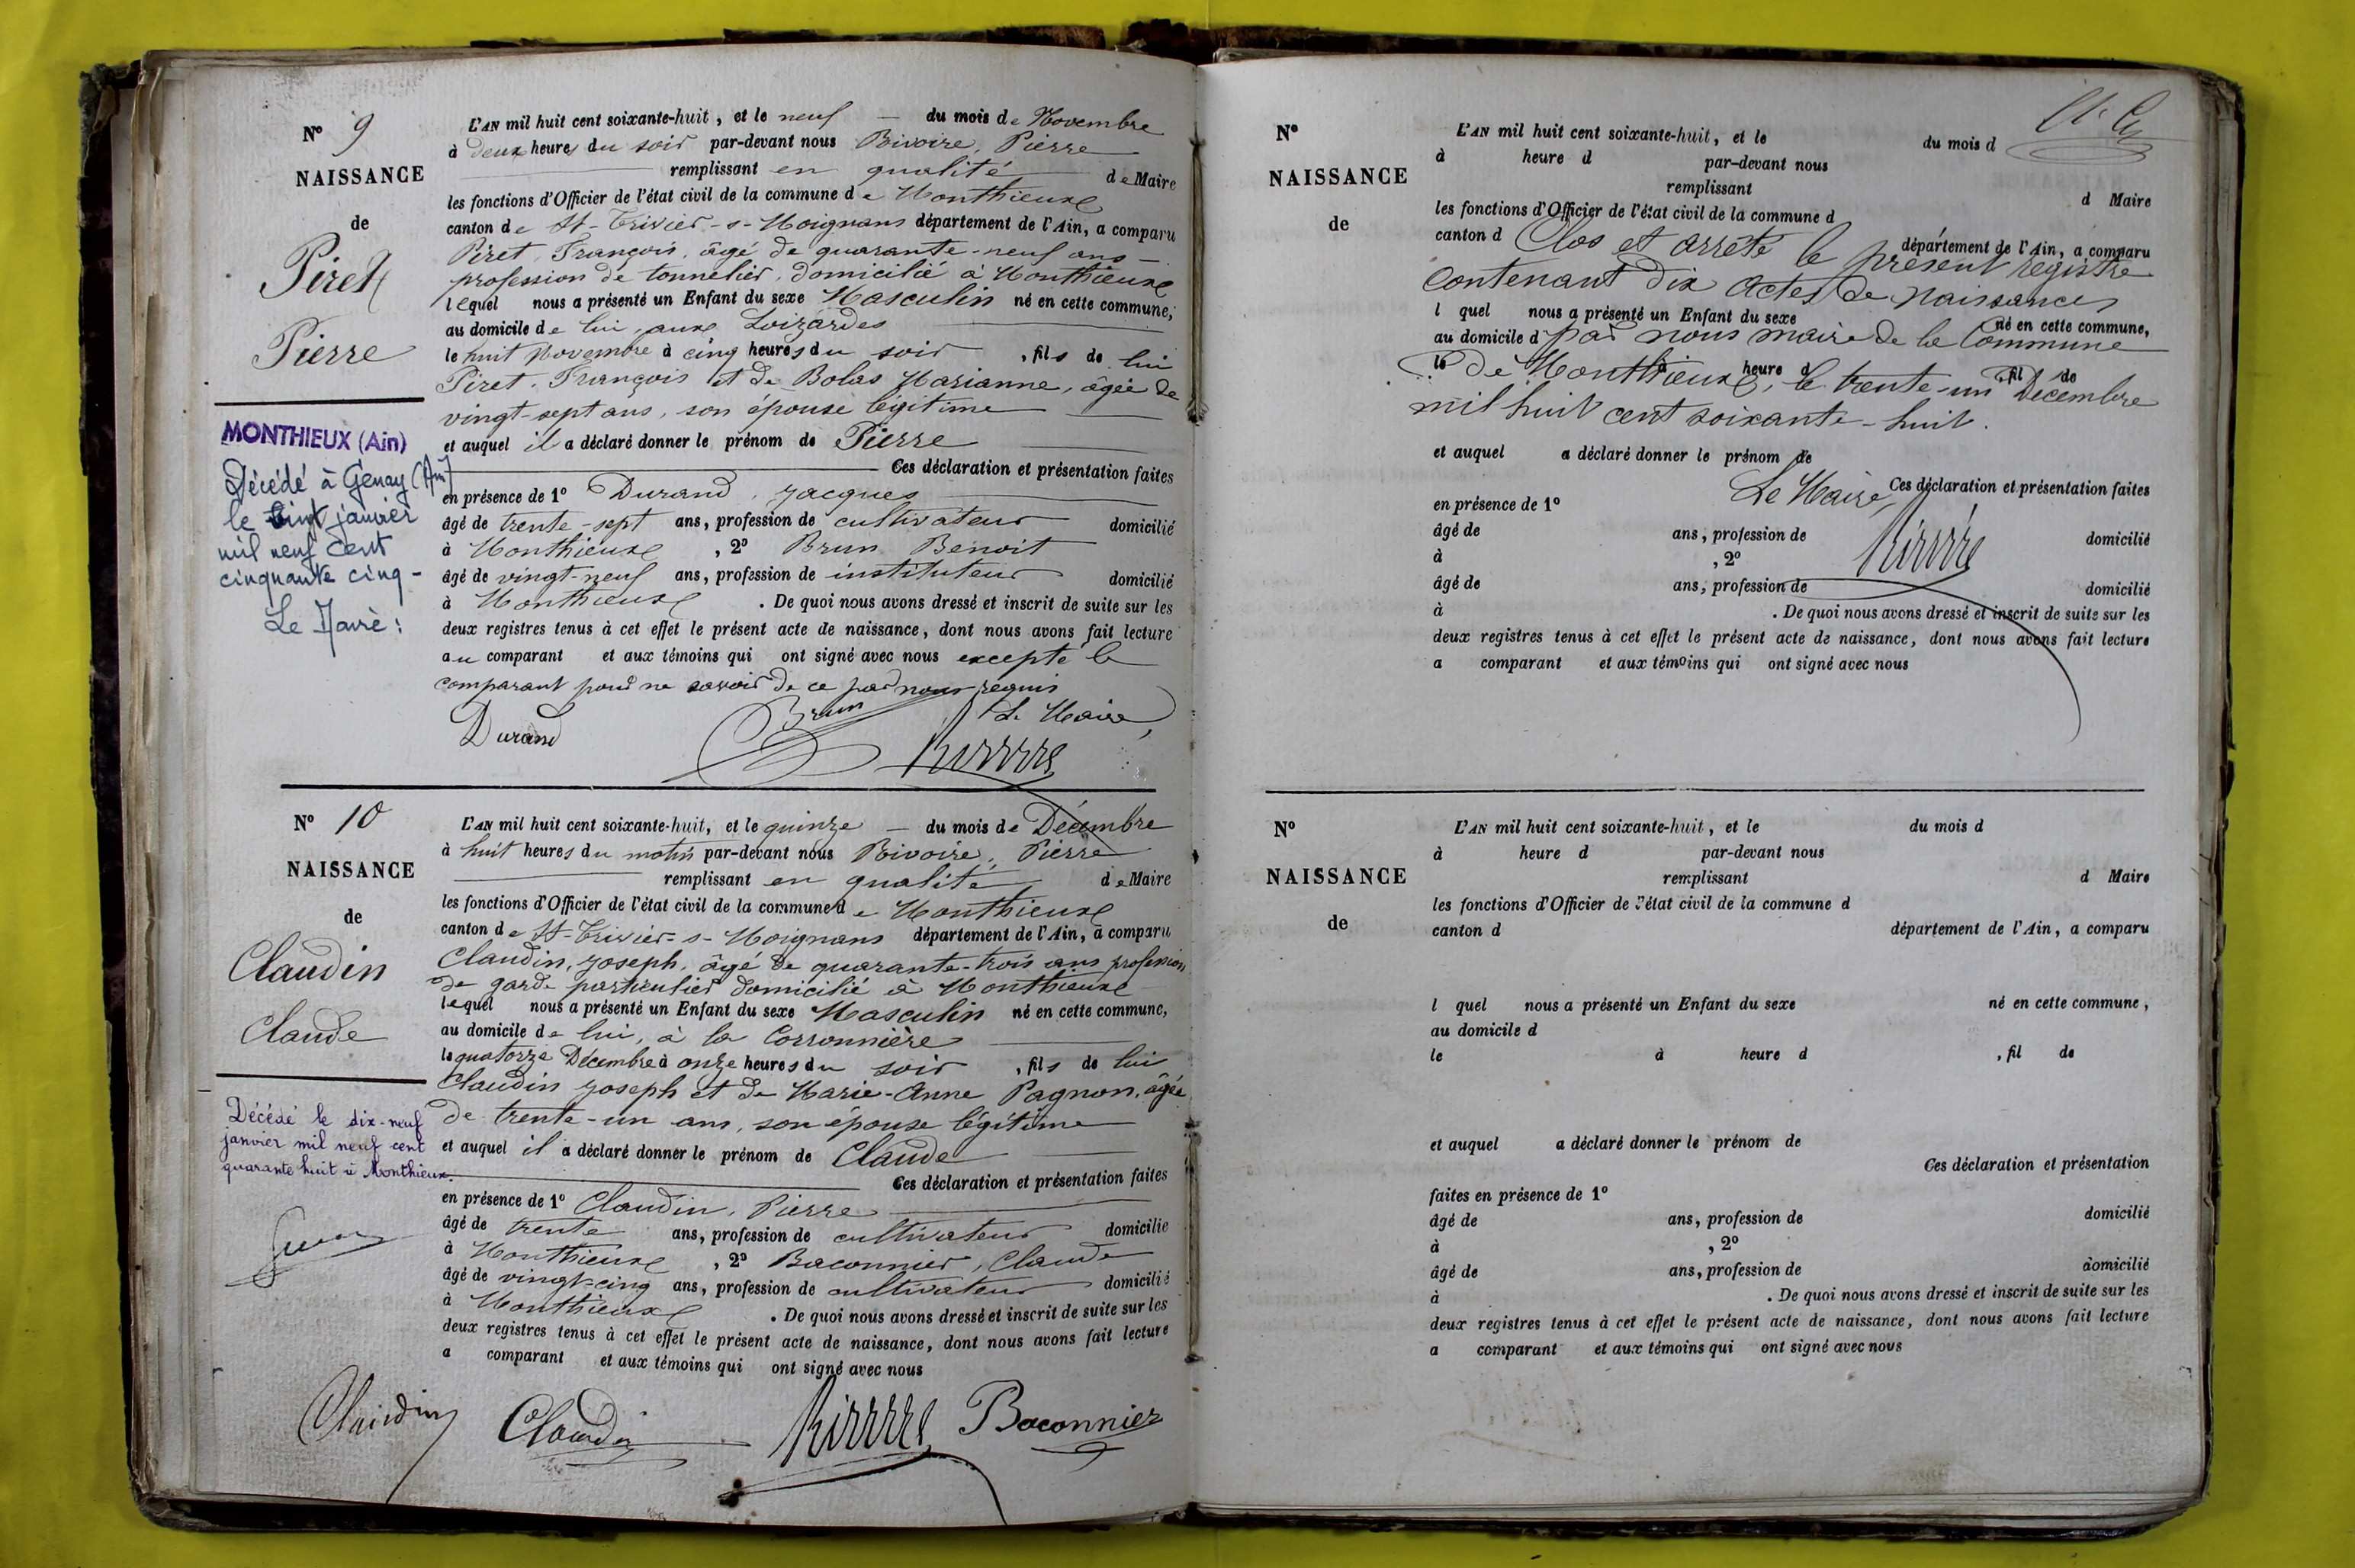 Nº 9
NAISSANCE
de
Piret
Pierre
MONTHIEUX (Ain)
Décédé à Genay (Ain)
le vint janvier
mil neuf cent
cinquante cinq -
Le Maire :
L'AN mil huit cent soixante-huit, et le neuf — du mois de Novembre
à deux heures du soir par-devant nous Rivoire, Pierre
remplissant en qualité de Maire
les fonctions d'Officier de l'état civil de la commune de Monthieux
canton de St-Trivier-s-Moignans département de l'Ain, a comparu
Piret, François, âgé de quarante-neuf ans —
profession de tonnelier, domicilié à Monthieux
lequel nous a présenté un Enfant du sexe Masculin né en cette commune,
au domicile de lui, aux Loizardes
le huit Novembre à cinq heures du soir , fils de lui
Piret, François et de Bolas Marianne, âgée de
vingt-sept ans, son épouse légitime
et auquel il a déclaré donner le prénom de Pierre
Ces déclaration et présentation faites
en présence de 1º Durand, Jacques
âgé de trente-sept ans, profession de cultivateur domicilié
à Monthieux , 2º Brun Benoit
âgé de vingt-neuf ans, profession de instituteur domicilié
à Monthieux . De quoi nous avons dressé et inscrit de suite sur les
deux registres tenus à cet effet le présent acte de naissance, dont nous avons fait lecture
au comparant et aux témoins qui ont signé avec nous excepté le
comparant pour ne savoir de ce par nous requis
Durand Brun Le Maire,
Rivoire
Nº 10
NAISSANCE
de
Claudin
Claude
Décédé le dix-neuf
janvier mil neuf cent
quarante huit à Monthieux.
L'AN mil huit cent soixante-huit, et le quinze — du mois de Décembre
à huit heures du matin par-devant nous Rivoire, Pierre
remplissant en qualité de Maire
les fonctions d'Officier de l'état civil de la commune de Monthieux
canton de St-Trivier-s-Moignans département de l'Ain, a comparu
Claudin, Joseph, âgé de quarante-trois ans profession
de garde particulier domicilié à Monthieux
lequel nous a présenté un Enfant du sexe Masculin né en cette commune,
au domicile de lui, à la Corronnière
le quatorze Décembre à onze heures du soir , fils de lui
Claudin Joseph et de Marie-Anne Pagnon, âgée
de trente-un ans, son épouse légitime
et auquel il a déclaré donner le prénom de Claude
Ces déclaration et présentation faites
en présence de 1º Claudin, Pierre
âgé de trente ans, profession de cultivateur domicilié
à Monthieux , 2º Baconnier, Claude
âgé de vingt-cinq ans, profession de cultivateur domicilié
à Monthieux . De quoi nous avons dressé et inscrit de suite sur les
deux registres tenus à cet effet le présent acte de naissance, dont nous avons fait lecture
a comparant et aux témoins qui ont signé avec nous
Claudin Claudin Rivoire Baconnier
Nº
NAISSANCE
de
L'AN mil huit cent soixante-huit, et le du mois d
à heure d par-devant nous
remplissant d Maire
les fonctions d'Officier de l'état civil de la commune d
canton d département de l'Ain, a comparu
Clos et arrêté le présent registre
contenant dix actes de naissances
l quel nous a présenté un Enfant du sexe né en cette commune,
au domicile d par nous maire de la Commune
le à heure d , fil de
de Monthieux, le trente-un Décembre
mil huit cent soixante-huit.
et auquel a déclaré donner le prénom de
Ces déclaration et présentation faites
Le Maire,
en présence de 1º
âgé de ans, profession de domicilié
à , 2º
Rivoire
âgé de ans, profession de domicilié
à . De quoi nous avons dressé et inscrit de suite sur les
deux registres tenus à cet effet le présent acte de naissance, dont nous avons fait lecture
a comparant et aux témoins qui ont signé avec nous
Nº
NAISSANCE
de
L'AN mil huit cent soixante-huit, et le du mois d
à heure d par-devant nous
remplissant d Maire
les fonctions d'Officier de l'état civil de la commune d
canton d département de l'Ain, a comparu
l quel nous a présenté un Enfant du sexe né en cette commune,
au domicile d
le à heure d , fil de
et auquel a déclaré donner le prénom de
Ces déclaration et présentation
faites en présence de 1º
âgé de ans, profession de domicilié
à , 2º
âgé de ans, profession de domicilié
à . De quoi nous avons dressé et inscrit de suite sur les
deux registres tenus à cet effet le présent acte de naissance, dont nous avons fait lecture
a comparant et aux témoins qui ont signé avec nous